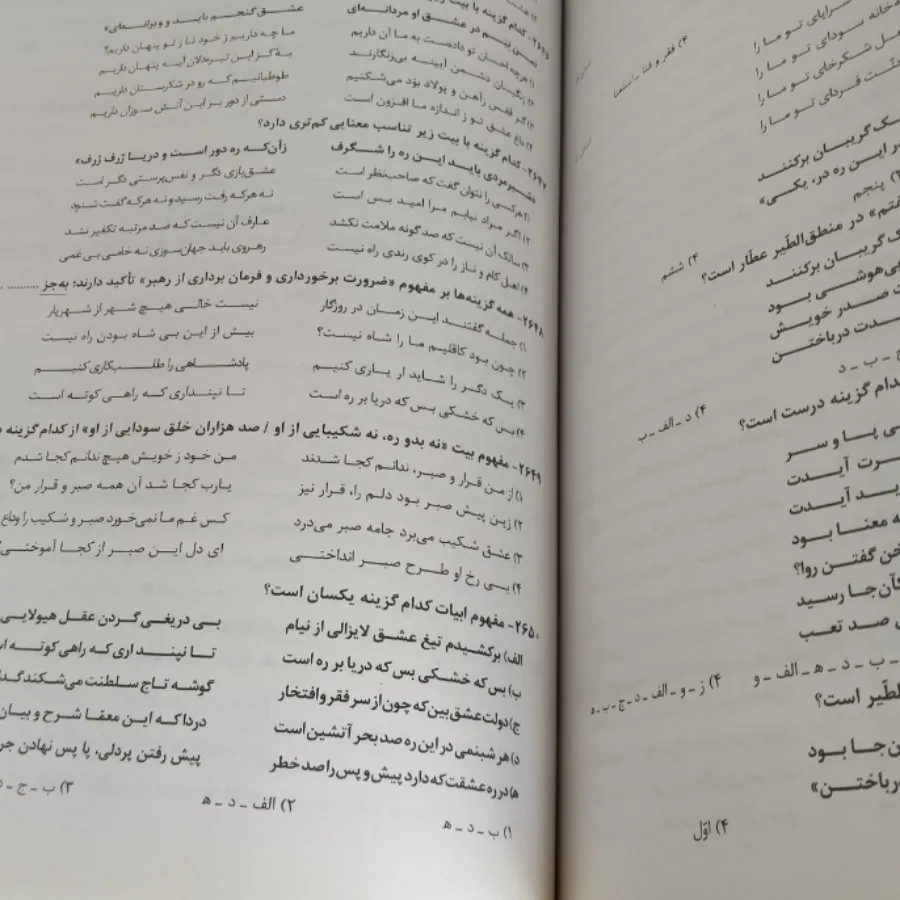 رایای تو ما را
خانه سودای تو ما را
ـل شکرخای تو ما را
ـت فردای تو ما را
۴) فقر و فنا ـ استغنا
ـک گریبان برکنند
ـر این ره در، یکی»
۲) پنجم
۴) ششم
ـفتم» در منطق‌الطّیر عطّار است؟
ـک گریبان برکنند
بی‌هوشی بود
ت صدر خویش
ـدت درباختن
ج ـ ب ـ د
۴) د ـ الف ـ ب
کدام گزینه درست است؟
ـی پا و سر
ـرت آیدت
ـید آیدت
ـه معنا بود
ـخن گفتن روا؟
کآن‌جا رسید
ـی صد تعب
ـ ب ـ د ـ هـ ـ الف ـ و
۴) ز ـ و ـ الف ـ د ـ ج ـ ب ـ هـ
ـالطّیر است؟
ـن‌جا بود
درباختن»
۴) اوّل
۲۶۴۶ـ کدام گزینه با بیت
نیم در عشق او مردانه‌ای عشق گنجم باید و ویرانه‌ای»
۱) هرچه احسان تو دادست به ما آن داریم ما چه داریم ز خود تا ز تو پنهان داریم؟
۲) زنگیان دشمن آیینه بی‌زنگارند به کز این تیره‌دلان آینه پنهان داریم
۳) گر قفس ز آهن و پولاد بود می‌شکنیم طوطیانیم که رو در شکرستان داریم
۴) داغ عشق تو ز اندازه ما افزون است دستی از دور بر این آتش سوزان داریم
۲۶۴۷ـ کدام گزینه با بیت زیر تناسب معنایی کم‌تری دارد؟
«شیرمردی باید این ره را شگرف زآن‌که ره دور است و دریا ژرف ژرف»
۱) هرکسی را نتوان گفت که صاحب‌نظر است عشق‌بازی دگر و نفس‌پرستی دگر است
۲) اگر مراد نیابم مرا امید بس است نه هرکه رفت رسید و نه هرکه گفت شنود
۳) سالک آن نیست که صدگونه ملامت نکشد عارف آن نیست که صد مرتبه تکفیر نشد
۴) اهل کام و ناز را در کوی رندی راه نیست رهروی باید جهان‌سوزی نه خامی بی‌غمی
۲۶۴۸ـ همه گزینه‌ها بر مفهوم «ضرورت برخورداری و فرمان برداری از رهبر» تأکید دارند؛ به‌جز ..........
۱) جمله گفتند این زمان در روزگار نیست خالی هیچ شهر از شهریار
۲) چون بود کاقلیم ما را شاه نیست؟ بیش از این بی شاه بودن راه نیست
۳) یک دگر را شاید ار یاری کنیم پادشاهی را طلب‌کاری کنیم
۴) بس که خشکی بس که دریا بر ره است تا نپنداری که راهی کوته است
۲۶۴۹ـ مفهوم بیت «نه بدو ره، نه شکیبایی از او / صد هزاران خلق سودایی از او» از کدام گزینه
۱) از من قرار و صبر، ندانم کجا شدند من خود ز خویش هیچ ندانم کجا شدم
۲) زین پیش صبر بود دلم را، قرار نیز یارب کجا شد آن همه صبر و قرار من؟
۳) عشق شکیب می‌برد جامه صبر می‌درد کس غم ما نمی‌خورد صبر و شکیب را وداع
۴) بی رخ او طرح صبر انداختی ای دل این صبر از کجا آموختی؟
۲۶۵۰ـ مفهوم ابیات کدام گزینه یکسان است؟
الف) برکشیدم تیغ عشق لایزالی از نیام بی دریغی گردن عقل هیولایی
ب) بس که خشکی بس که دریا بر ره است تا نپنداری که راهی کوته
ج) دولت عشق بین که چون از سر فقر و افتخار گوشه تاج سلطنت می‌شکند
د) هر شبنمی در این ره صد بحر آتشین است دردا که این معمّا شرح و بیان
هـ) در ره عشقت که دارد پیش و پس را صد خطر پیش رفتن پردلی، پا پس نهادن
۱) ب ـ د ـ هـ ۲) الف ـ د ـ هـ ۳) ب ـ ج ـ